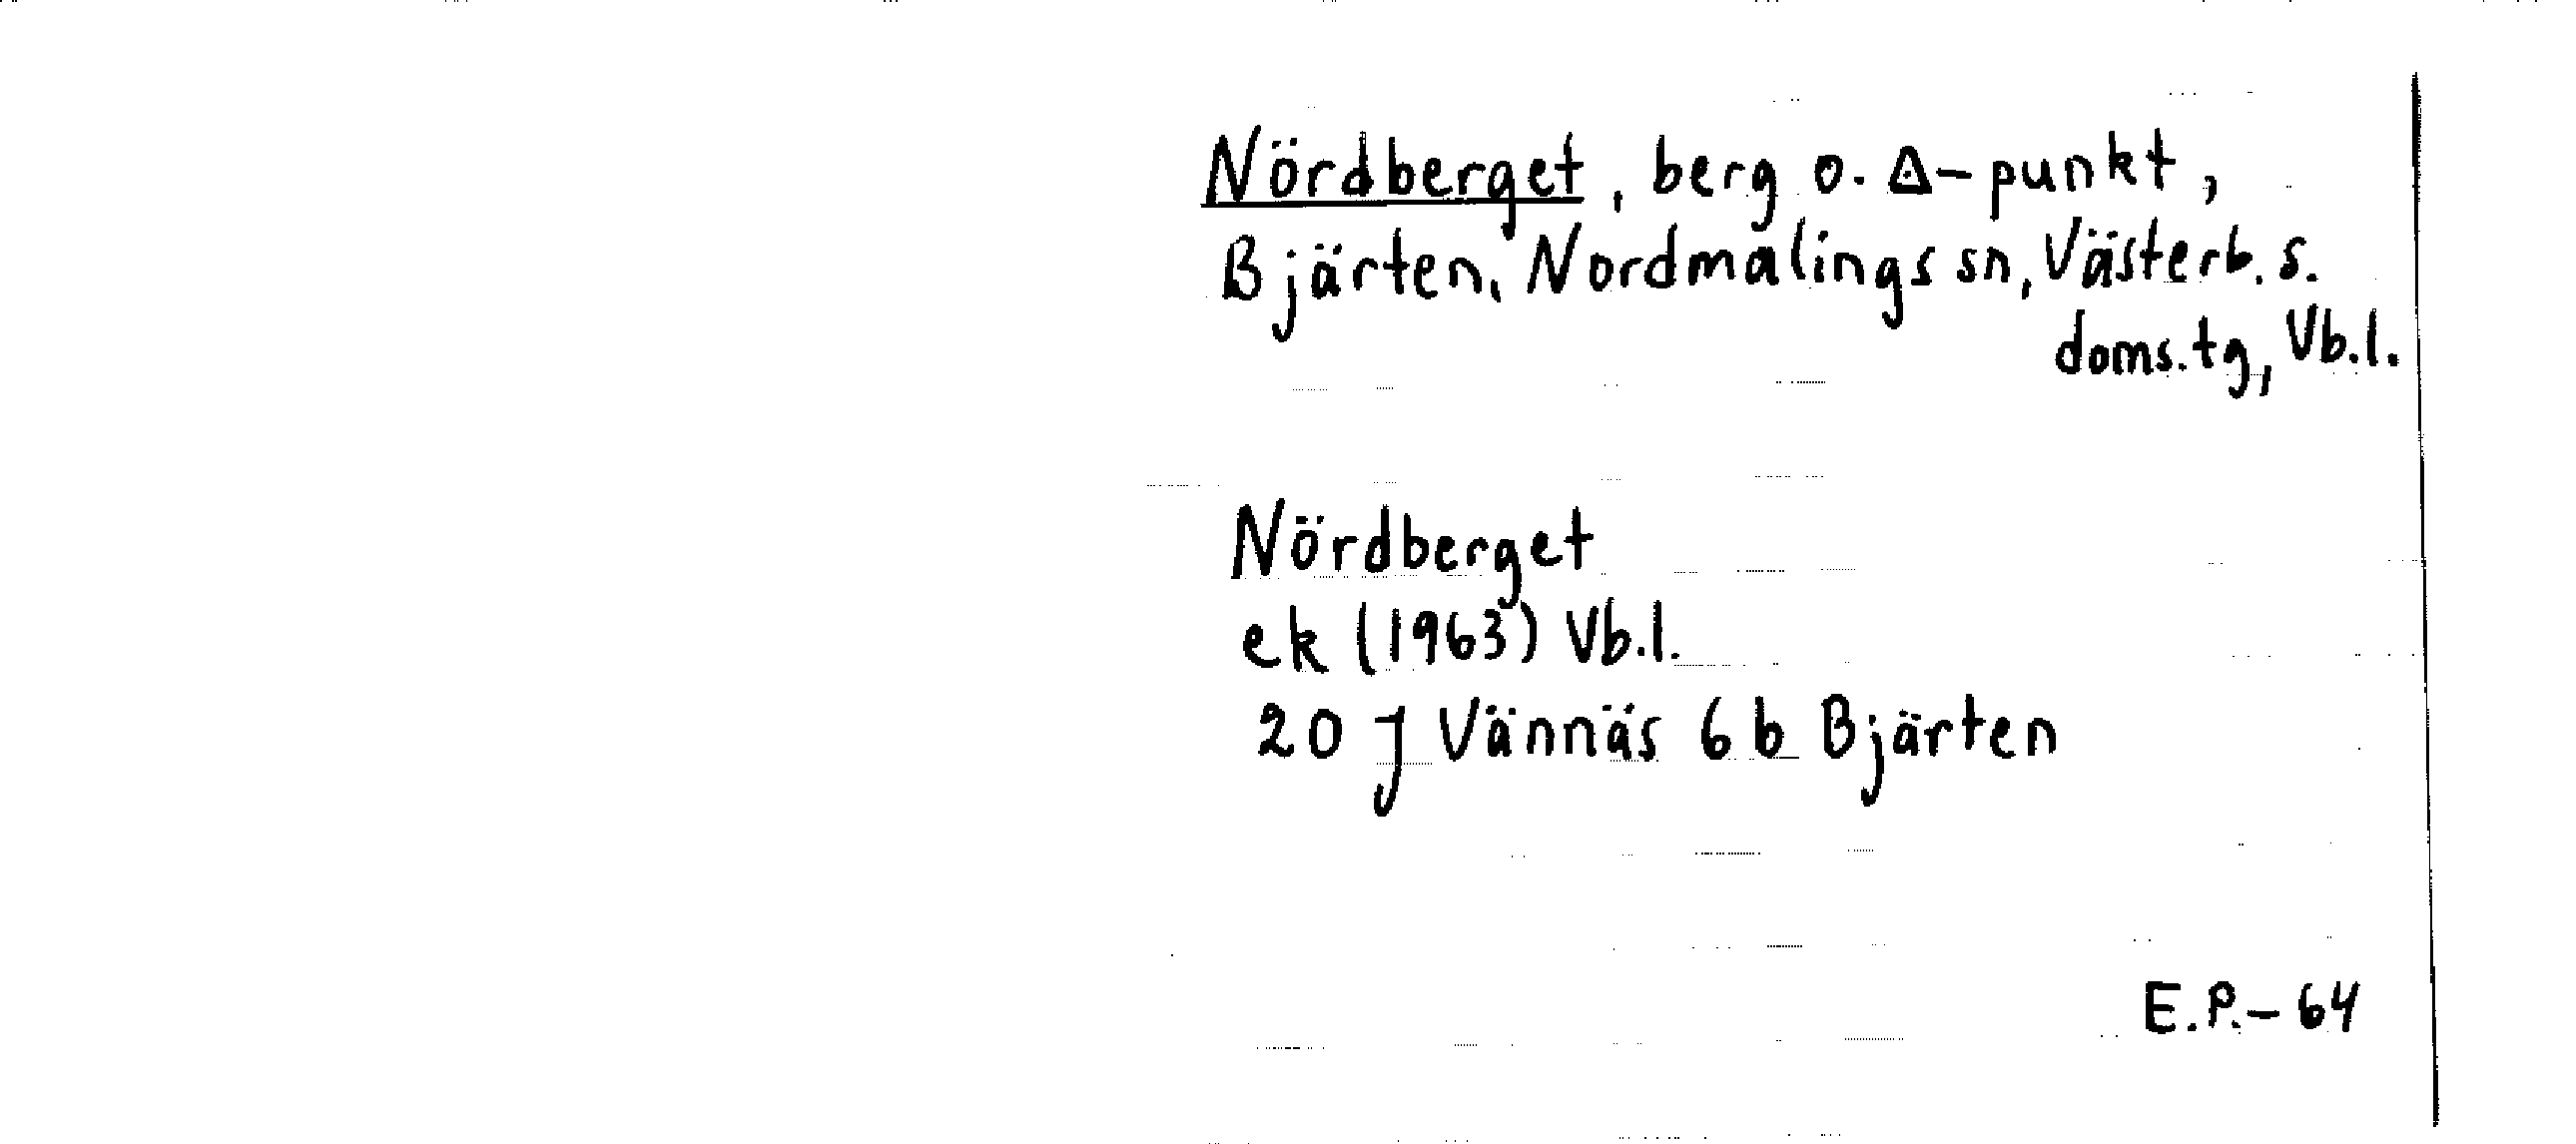 Nördberget, berg o. △-punkt,
Bjärten, Nordmalings sn, Västerb. s.
doms.tg, Vb.l.
Nördberget
ek (1963) Vb.l.
20 J Vännäs 6 b Bjärten
E.P.-64